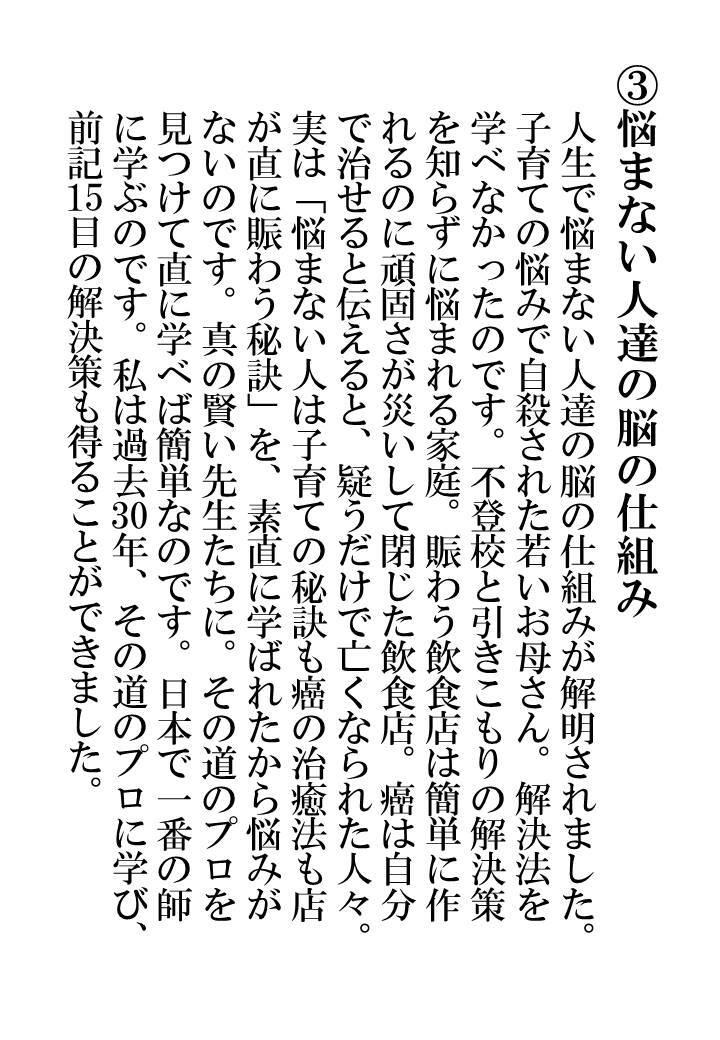 ③悩まない人達の脳の仕組み
人生で悩まない人達の脳の仕組みが解明されました。
子育ての悩みで自殺された若いお母さん。解決法を
学べなかったのです。不登校と引きこもりの解決策
を知らずに悩まれる家庭。賑わう飲食店は簡単に作
れるのに頑固さが災いして閉じた飲食店。癌は自分
で治せると伝えると、疑うだけで亡くなられた人々。
実は「悩まない人は子育ての秘訣も癌の治癒法も店
が直に賑わう秘訣」を、素直に学ばれたから悩みが
ないのです。真の賢い先生たちに。その道のプロを
見つけて直に学べば簡単なのです。日本で一番の師
に学ぶのです。私は過去30年、その道のプロに学び、
前記15目の解決策も得ることができました。